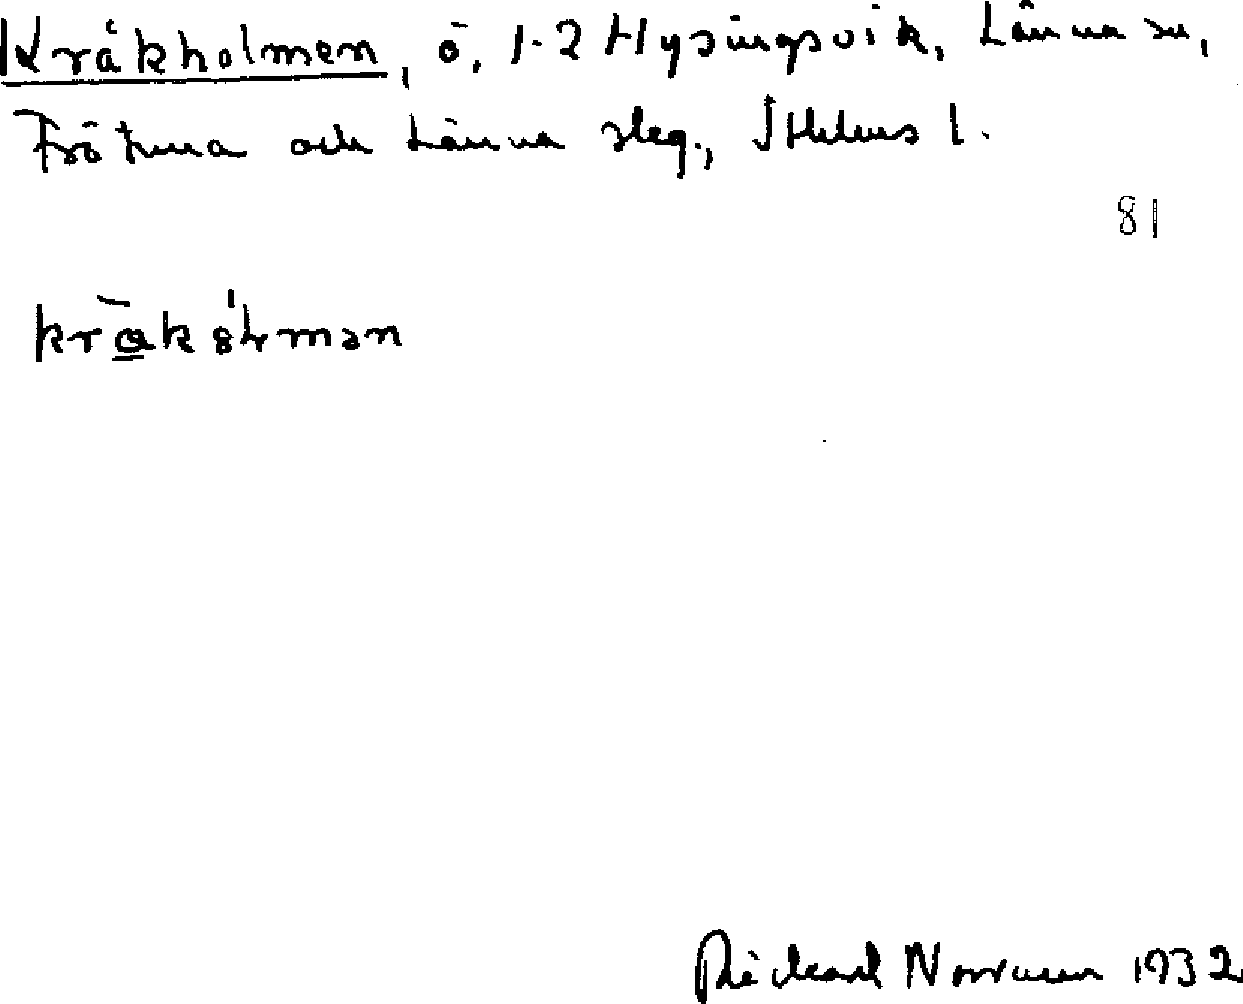 Kråkholmen, ö, 1-2 Hysingsvik, Länna sn,
Frötuna och Länna slg., Sthlms l.
81
Rickard Norrman 1932